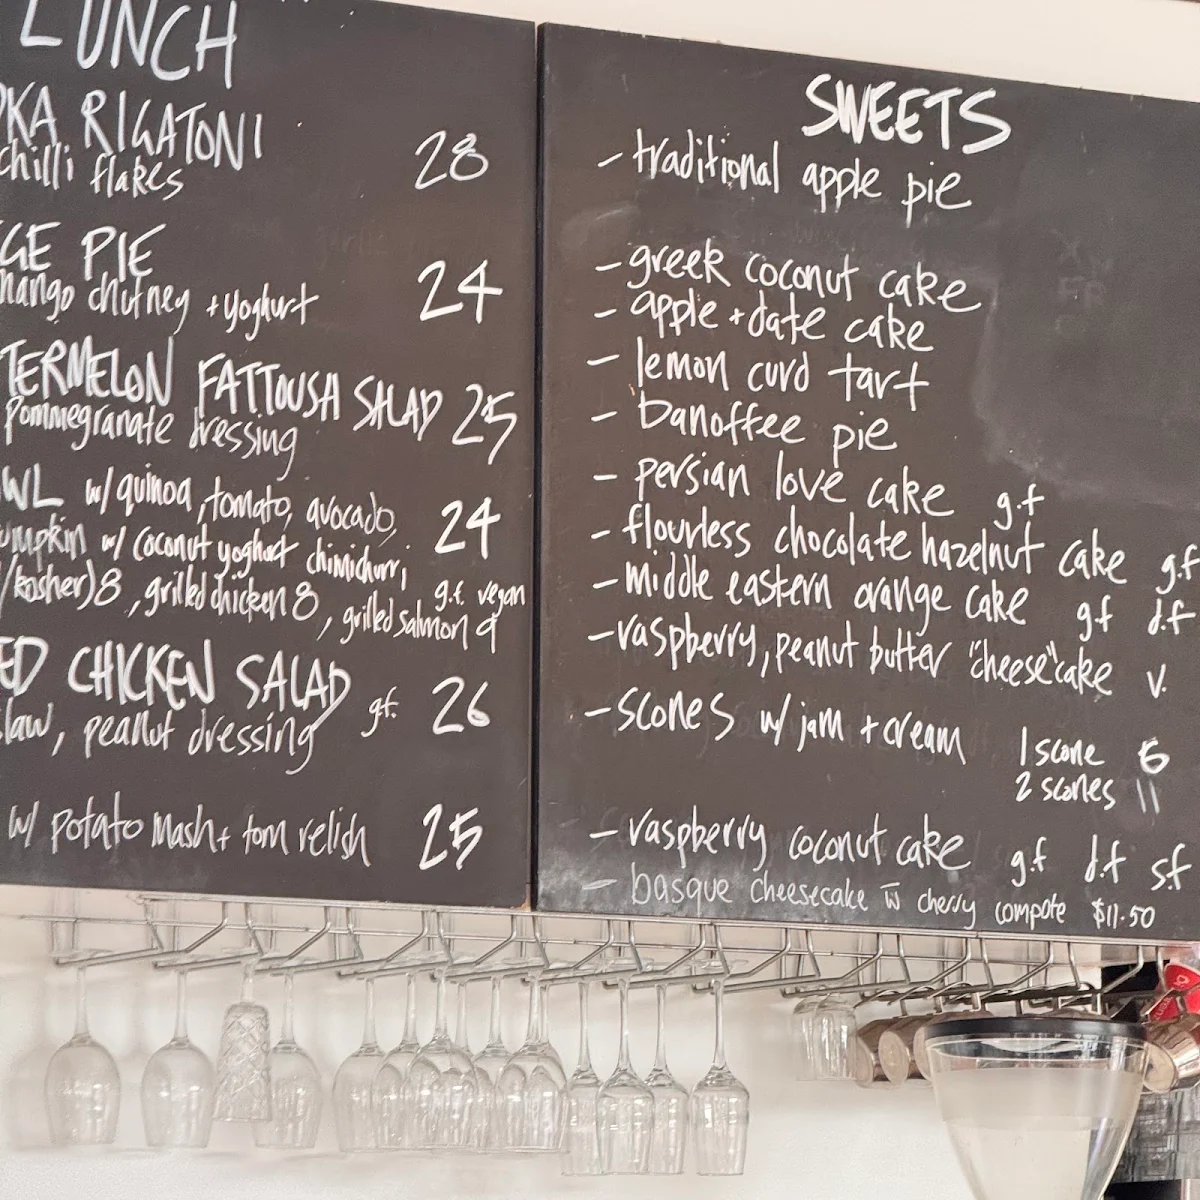 LUNCH
RIGATONI
chilli flakes 28
PIE
mango chutney + yoghurt 24
FATTOUSH SALAD 25
pommegranate dressing
w/ quinoa, tomato, avocado, 24
w/ coconut yoghurt chimichurri
g.f. vegan
/kosher) 8, grilled chicken 8, grilled salmon 9
CHICKEN SALAD gf. 26
slaw, peanut dressing
w/ potato mash + tom relish 25
SWEETS
- traditional apple pie
- greek coconut cake
- apple + date cake
- lemon curd tart
- banoffee pie
- persian love cake g.f
- flourless chocolate hazelnut cake g.f
- middle eastern orange cake g.f d.f
- raspberry, peanut butter "cheese"cake v.
- scones w/ jam + cream 1 scone 6
2 scones 11
- raspberry coconut cake g.f d.f s.f
- basque cheesecake w cherry compote $11.50